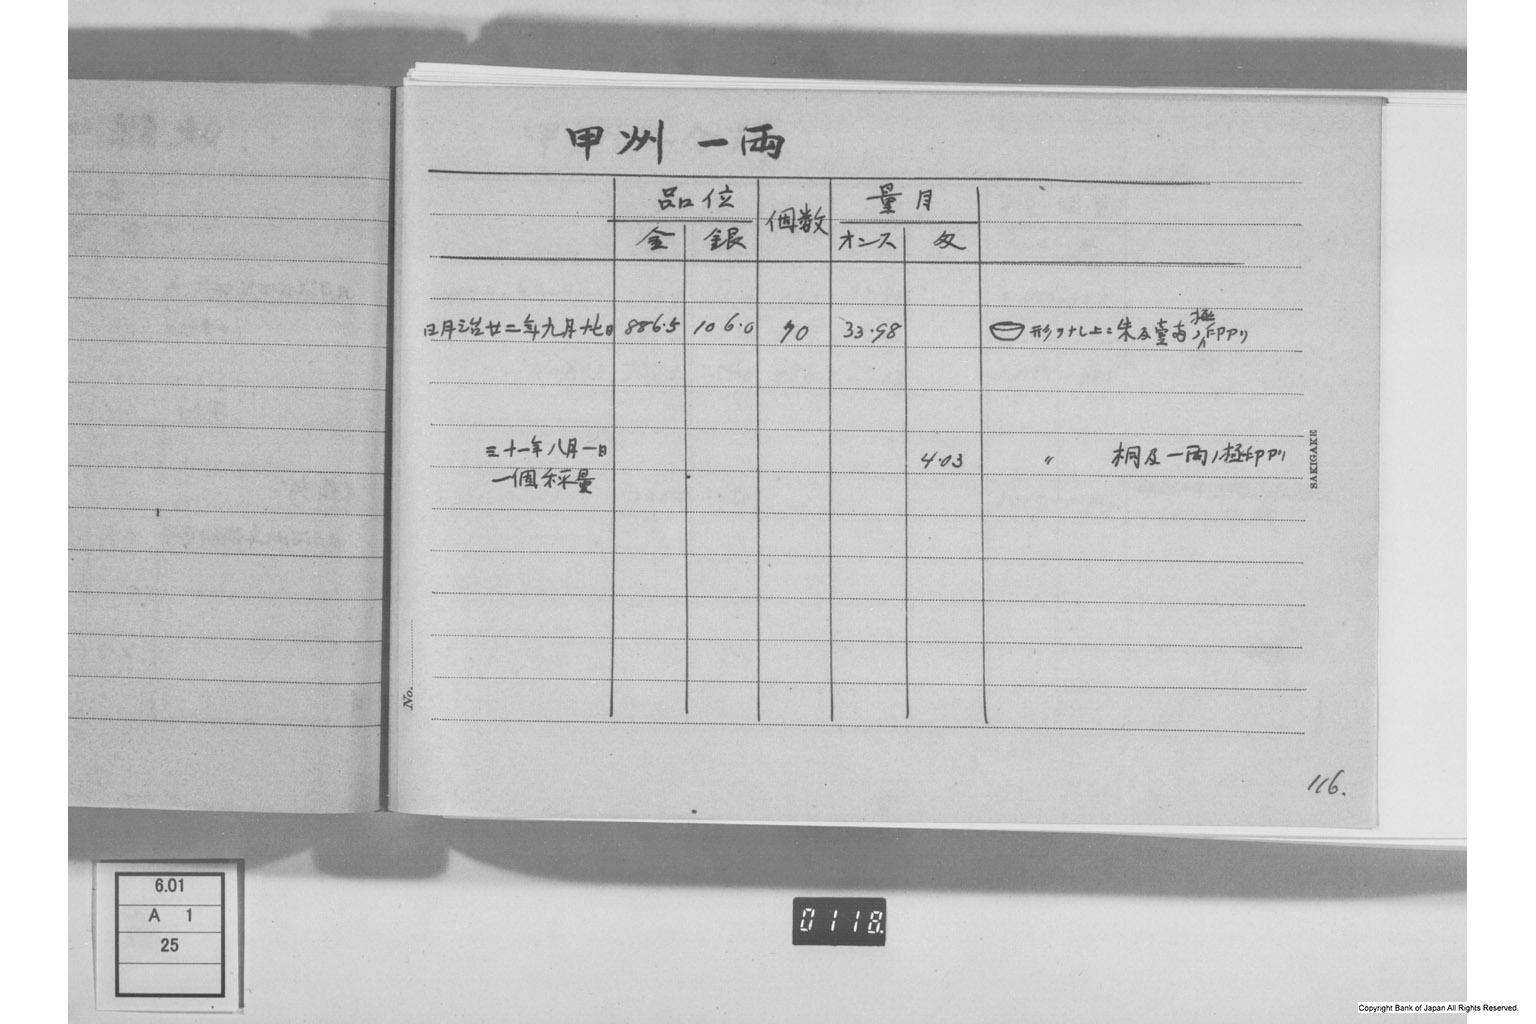 甲州一両
品位 個数 量目
金 銀 オンス 匁
明治廿二年九月十七日 886.5 106.0 70 33.98 形ヲナシ上ニ 極印アリ
三十一年八月一日 4.03 〃 桐及一両ノ極印アリ
一個秤量
SAKIGAKE
No.
116.
6.01
A 1
25
0118.
Copyright Bank of Japan All Rights Reserved.